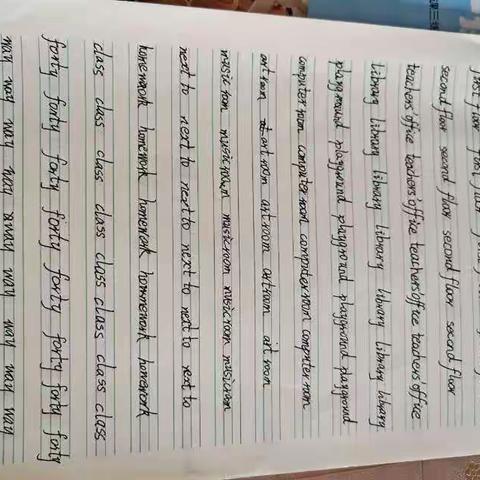 first floor first floor first floor
second floor second floor second floor second floor
teachers' office teachers' office teachers' office teachers' office
library library library library library library library
playground playground playground playground playground
computer room computer room computer room computer room
art room art room art room art room art room
music room music room music room music room music room
next to next to next to next to next to next to
homework homework homework hommework homework
class class class class class class class class
forty forty forty forty forty forty forty forty
way way way way away way way way way